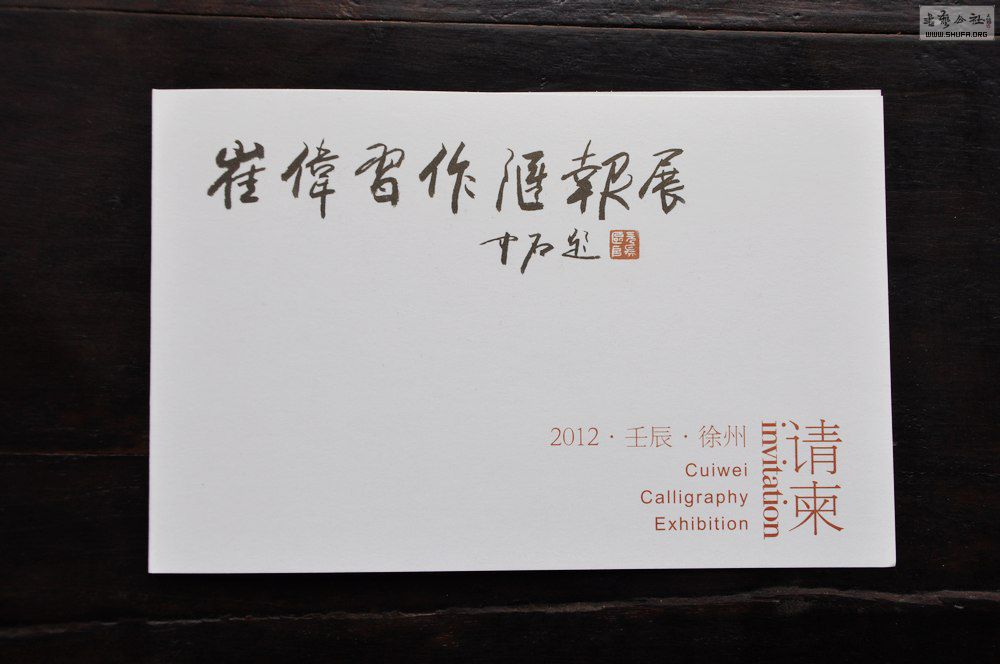 书艺公社
WWW.SHUFA.ORG
崔偉習作滙報展
中石題
2012 · 壬辰 · 徐州
Cuiwei
Calligraphy
Exhibition
invitation
请柬